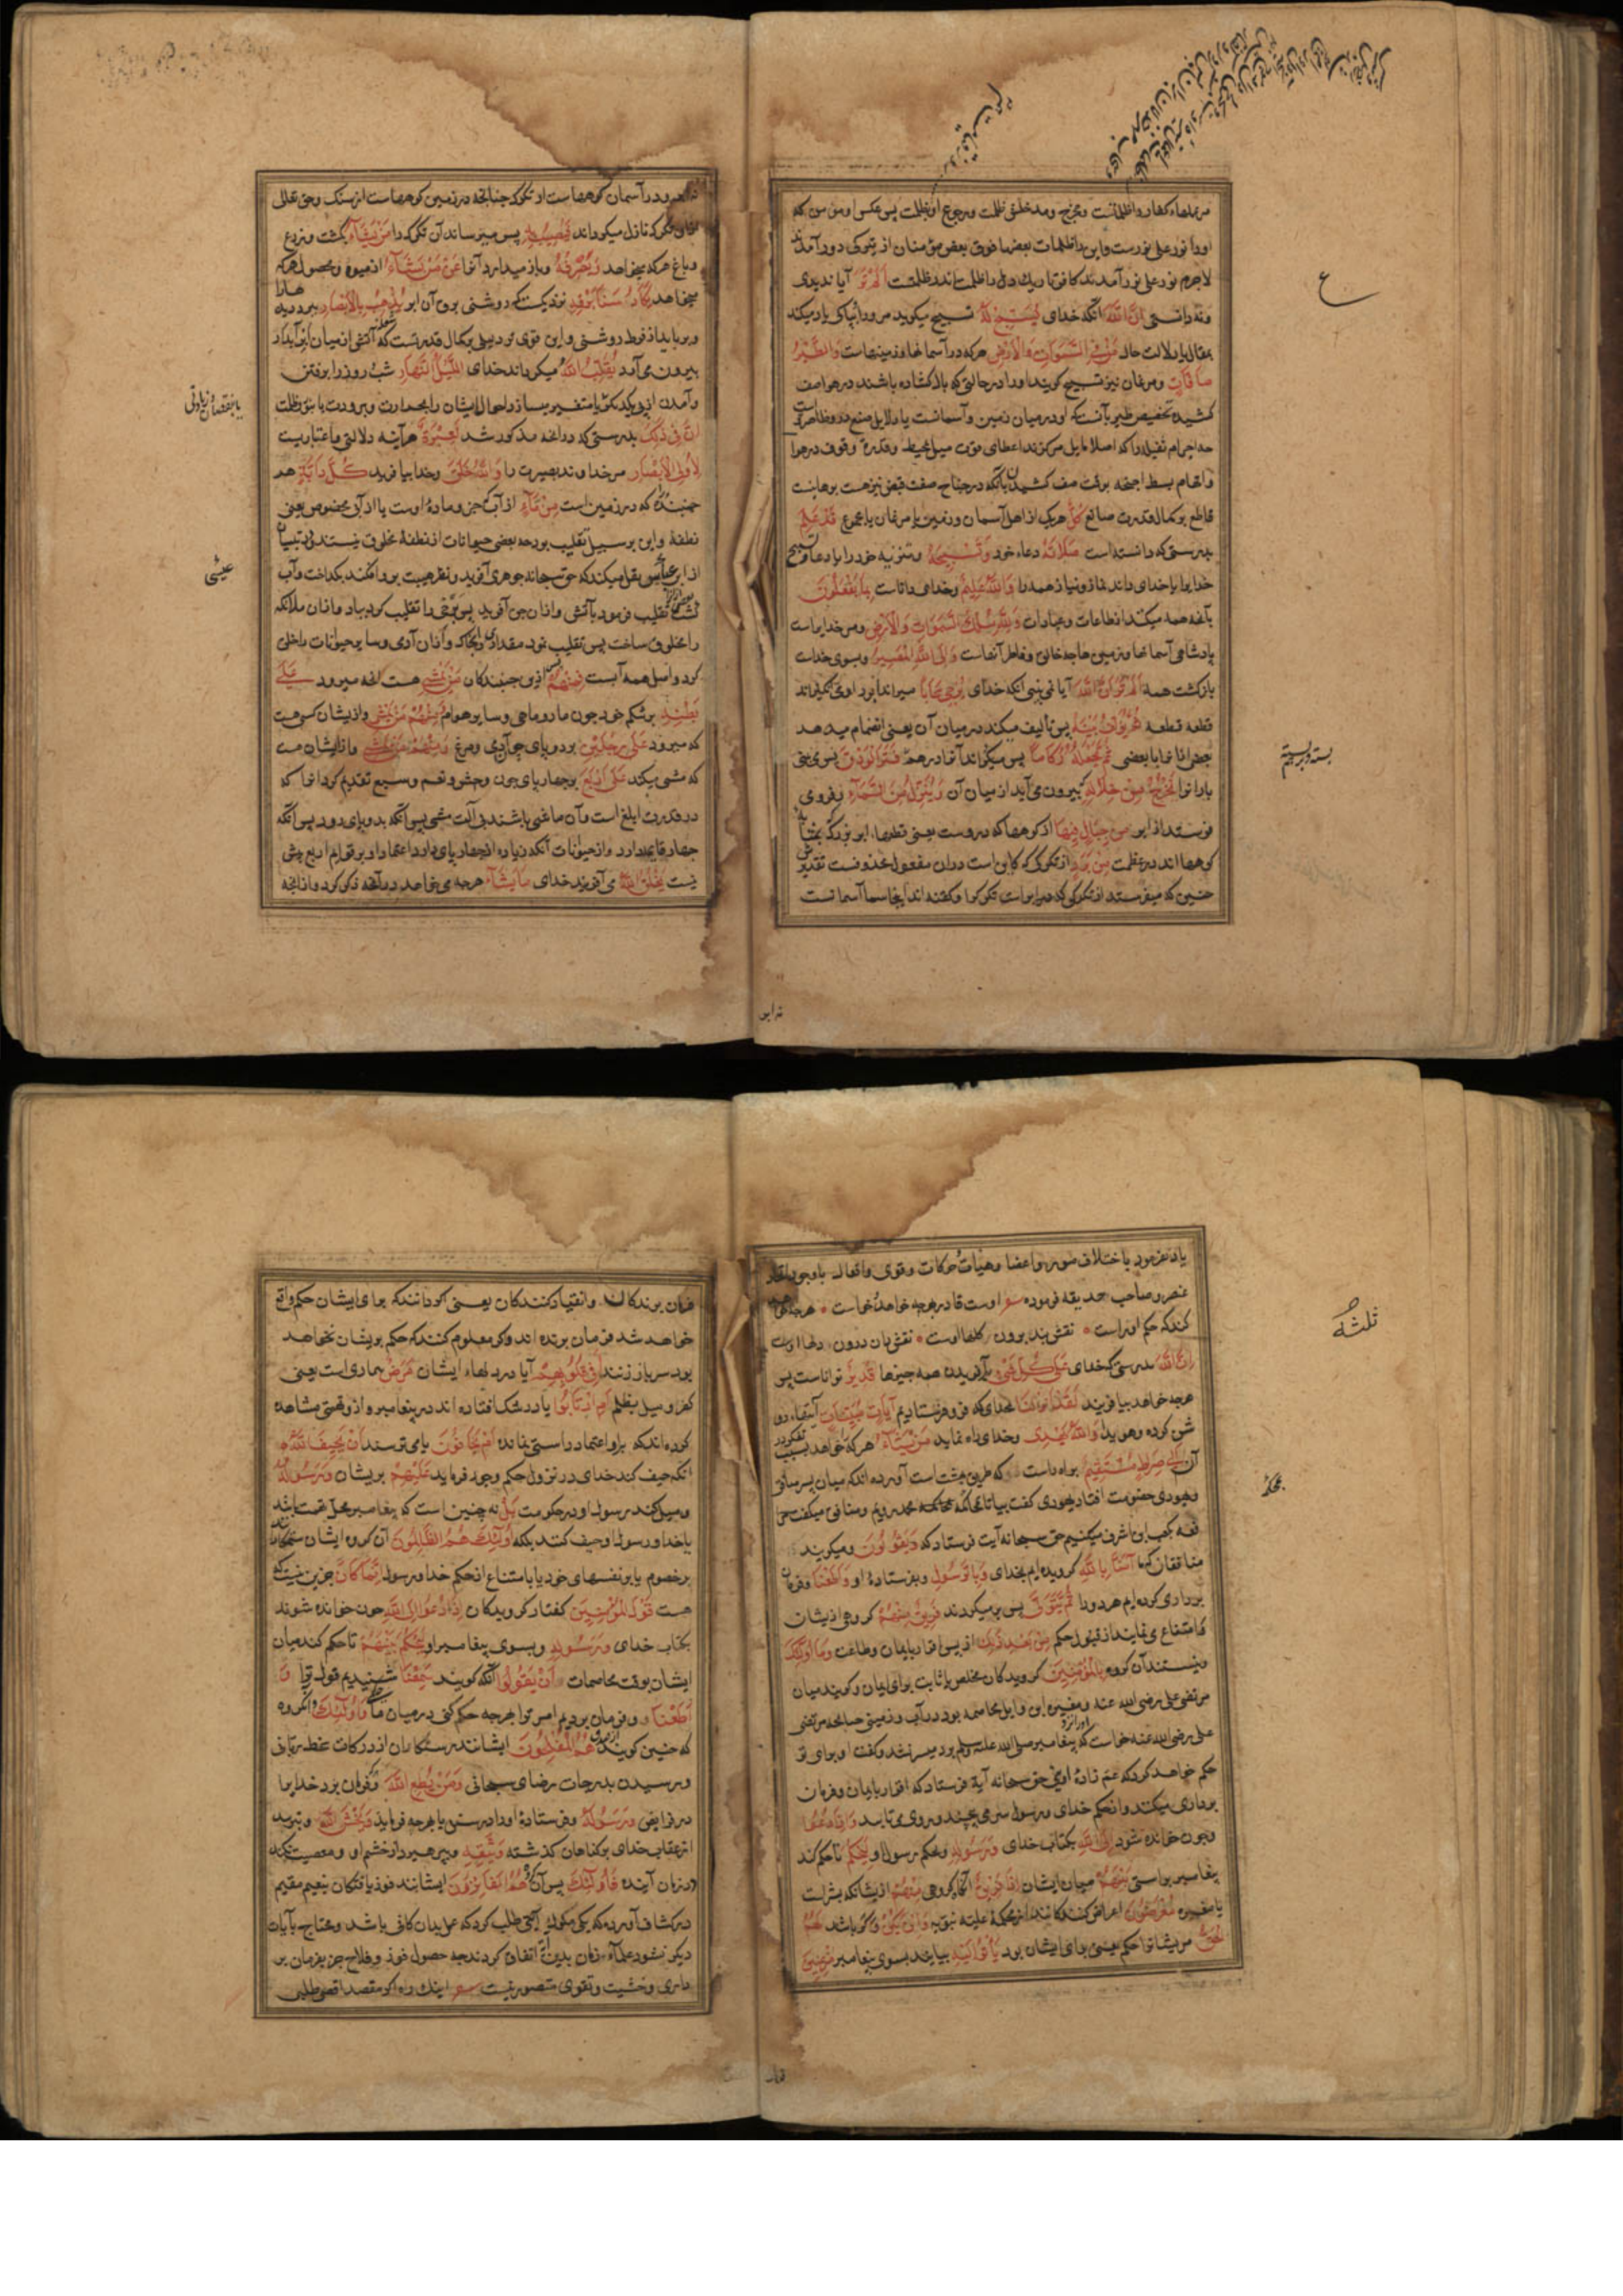 مر عملهاء کفار را ظلماتست و مخرج و مدخلش ظلمت و رجوع او بظلمت پس عکس او مومن که
او را نور علی نورست و این را ظلمات بعضها فوق بعض مومنان از پرتوی دور آمدند
لاجرم نور علی نور آمدند کافر تاریک دل را ظلمت ماند در ظلمتست أَلَمْ تَرَ آیا ندیدی
و ندانستی أَنَّ اللَّهَ آنکه خدای یُسَبِّحُ لَهُ تسبیح میگوید مر او را بپاکی یاد میکند
بمقال یا دلالت حال مَنْ فِی السَّمَوَاتِ وَالْأَرْضِ هر که در آسمانها و زمینهاست وَالطَّیْرُ
صَافَّاتٍ و مرغان نیز تسبیح گویند او را در حالتی که بال کشاده باشند در هوا صف
کشیده تخصیص طیر بآنست که او در میان زمین و آسمانست یا دلایل صنع درو ظاهرتر است
چه اجرام ثقیله را که اصلا مایل مرکزند اعطای قوت میل محیط و قدرة وقوف در هوا
و الهام بسط اجنحه بوقت صف کشیدن با آنکه در جناح صفت قبض نیز هست برهانیست
قاطع بر کمال قدرت صانع کُلٌّ هر یک از اهل آسمان و زمین یا مرغان یا مجموع قَدْ عَلِمَ
بدرستی که دانسته است صَلَاتَهُ دعاء خود وَتَسْبِیحَهُ و تنزیه خود را یا دعا و تسبیح
خدایرا یا خدای داند نماز و نیاز همه را وَاللَّهُ عَلِیمٌ و خدای داناست بِمَا یَفْعَلُونَ
بآنچه همه میکنند از طاعات و عبادات وَلِلَّهِ مُلْکُ السَّمَوَاتِ وَالْأَرْضِ و مر خدایراست
پادشاهی آسمانها و زمین چه خالق و فاطر آنهاست وَإِلَی اللَّهِ الْمَصِیرُ و بسوی خداست
بازگشت همه أَلَمْ تَرَ أَنَّ اللَّهَ آیا نمی بینی آنکه خدای یُزْجِی سَحَابًا میراند ابر را
قطعه قطعه ثُمَّ یُؤَلِّفُ بَیْنَهُ پس تألیف میکند در میان آن یعنی انضمام میدهد
بعضی را از آنها با بعضی ثُمَّ یَجْعَلُهُ رُکَامًا پس میگرداند آنها را درهم فَتَرَی الْوَدْقَ پس می بینی
باران را یَخْرُجُ مِنْ خِلَالِهِ که بیرون می آید از میان آن وَیُنَزِّلُ مِنَ السَّمَاءِ و فرو می
فرستد از ابر مِنْ جِبَالٍ فِیهَا از کوهها که دروست یعنی قطعها، ابر بزرگ که بمثابه
کوهها اند در عظمت مِنْ بَرَدٍ از تکرکی که کاین است دران مفعول محذوفست تقدیرش
چنین که میفرستد از تکرکی که در ابر است تکرکرا و گفته اند اینجا سما آسمانست
ع
بسته و برهم
و در آسمان کوههاست از تکرک چنانچه در زمین کوههاست از سنک و حق تعالی
ازان تکرک نازل میگرداند فَیُصِیبُ بِهِ پس میرساند آن تکرک را مَنْ یَشَاءُ بکشت و زرع
و باغ هر که میخواهد وَیَصْرِفُهُ و باز میدارد آنرا عَنْ مَنْ یَشَاءُ از میوه و محصول هر که
میخواهد یَکَادُ سَنَا بَرْقِهِ نزدیکست که روشنی برق آن ابر یَذْهَبُ بِالْأَبْصَارِ ببرد دیدهارا
و برباید از فرط روشنی و این قوی تر دلیلی بر کمال قدرتست که شعله آتشی از میان ابر آبدار
بیرون می آرد یُقَلِّبُ اللَّهُ میگرداند خدای اللَّیْلَ وَالنَّهَارَ شب و روز را برفتن
و آمدن از پی یکدیگر یا متغیر میسازد احوال ایشان را بحرارت و برودت یا بنور و ظلمت
إِنَّ فِی ذَلِکَ بدرستی که در آنچه مذکور شد لَعِبْرَةً هر آینه دلالتی و اعتباریست
لِأُولِی الْأَبْصَارِ مر خداوند بصیرت را وَاللَّهُ خَلَقَ و خدا بیافرید کُلَّ دَابَّةٍ هر
جنبنده که در زمین است مِنْ مَاءٍ از آب که جزو ماده اوست یا از آبی مخصوص یعنی
نطفه و این بر سبیل تغلیب بود چه بعضی حیوانات از نطفه مخلوق نیستند در تبیان
از ابن عباس نقل میکند که حق سبحانه جوهری آفرید و نظر هیبت برو افکند بگداخت و آب
شد بعضی ازان را تغلیب فرمود بآتش و ازان جن آفرید پس بعضی را تغلیب کرد بباد و ازان ملائکه
را مخلوق ساخت پس تغلیب نمود مقداری را بخاک و ازان آدمی و سایر حیوانات را خلق
کرد و اصل همه آبست فَمِنْهُمْ پس ازین جنبندکان مَنْ یَمْشِی هست آنچه میرود عَلَی
بَطْنِهِ بر شکم خود چون مار و ماهی و سایر هوام وَمِنْهُمْ مَنْ یَمْشِی و از ایشان کسی هست
که میرود عَلَی رِجْلَیْنِ بر دو پای چو آدمی و مرغ وَمِنْهُمْ مَنْ یَمْشِی و از ایشان هست
که مشی میکند عَلَی أَرْبَعٍ بر چهار پای چون وحش و نعم و سبع تقدیم کرد انرا که
در قدرت ابلغ است و آن ماشی باشد بی آلت مشی پس آنکه بدو پای رود پس آنکه
چهار قایمه دارد و از حیوانات آنکه زیاده از چهار پای دارد اعتماد او بر قوایم اربع بیش
نیست یَخْلُقُ اللَّهُ می آفریند خدای مَا یَشَاءُ هر چه میخواهد در آنچه ذکر کرد و از آنچه
یا بنقصان و زیادتی
یاد نفرمود باختلاف صور و اعضا و هیات و حرکات و قوی و افعال با وجود اتحاد
عنصر و صاحب حدیقه فرموده شعر اوست قادر بهرچه خواهد و خواست هرچه
کند که حکم او راست نقش بند برون کلها اوست نقش دان درون دلها اوست
إِنَّ اللَّهَ بدرستی که خدای عَلَی کُلِّ شَیْءٍ بآفریدن همه چیزها قَدِیرٌ تواناست پس
هرچه خواهد بیافریند لَقَدْ أَنْزَلْنَا بخدای که فرو فرستادیم آیَاتٍ مُبَیِّنَاتٍ آیتهاء رو
شن کرده و هویدا وَاللَّهُ یَهْدِی و خدای راه نماید مَنْ یَشَاءُ هر که را خواهد بسبب تفکر در
آن إِلَی صِرَاطٍ مُسْتَقِیمٍ براه راست که طریق بهشت است آورده اند که میان بشر منافق
و یهودی خصومت افتاد یهودی گفت بیا تا بمحاکمه محمد رویم و منافق میگفت
بکعب ابن اشرف میکنیم حق سبحانه آیت فرستاد که وَیَقُولُونَ و میگویند
منافقان که ما آمَنَّا بِاللَّهِ گرویده ایم بخدای وَبِالرَّسُولِ و بفرستاده او وَأَطَعْنَا و فرمان
برداری کرده ایم هر دو را ثُمَّ یَتَوَلَّی پس بر میگردند فَرِیقٌ مِنْهُمْ گروهی از ایشان
و امتناع مینمایند از قبول حکم مِنْ بَعْدِ ذَلِکَ از پس اقرار بایمان و طاعت وَمَا أُولَئِکَ
و نیستند آن گروه بِالْمُؤْمِنِینَ گرویدکان مخلص یا ثابت برای ایمان و گویند میان
مرتضی علی رضی الله عنه و مغیره ابن وایل مخاصمه بود در آب و زمینی چنانچه مرتضی
علی رضی الله عنه خواست که او را نزد پیغامبر صلی الله علیه وسلم برد میسر نشد و گفت او برای تو
حکم خواهد کرد که عم زاده اوئی حق سبحانه آیة فرستاد که اقرار بایمان و فرمان
برداری میکنند و از حکم خدای و رسول سر می پیچند و روی می تابند وَإِذَا دُعُوا
و چون خوانده شوند إِلَی اللَّهِ بکتاب خدای وَرَسُولِهِ و بحکم رسول او لِیَحْکُمَ تا حکم کند
پیغامبر براستی بَیْنَهُمْ میان ایشان إِذَا فَرِیقٌ آنگاه گروهی مِنْهُمْ از ایشان که بشر است
یا مغیره مُعْرِضُونَ اعراض کنندکانند از محکمه علیه نبویه وَإِنْ یَکُنْ و اگر باشد لَهُمُ
الْحَقُّ مر ایشانرا حکم یعنی برای ایشان بود یَأْتُوا إِلَیْهِ بیایند بسوی پیغامبر مُذْعِنِینَ
ثلثه
فرمان برندکان و انقیاد کنندکان یعنی کر دانند که برای ایشان حکم واقع
خواهد شد فرمان برنده اند و اگر معلوم کنند که حکم بر ایشان نخواهد
بود سر باز زنند أَفِی قُلُوبِهِمْ آیا در دلهاء ایشان مَرَضٌ بیماری است یعنی
کفر و میل بظلم أَمِ ارْتَابُوا یا در شک افتاده اند در پیغامبر و ازو قصتی مشاهده
کرده اند که برو اعتماد راستی نمانده أَمْ یَخَافُونَ یا می ترسند أَنْ یَحِیفَ اللَّهُ
آنکه حیف کند خدای در نزول حکم و جور فرماید عَلَیْهِمْ بر ایشان وَرَسُولُهُ
و میل کند رسول او در حکومت بَلْ نه چنین است که پیغامبر محل تهمت باشد
یا خدا و رسول او حیف کنند بلکه أُولَئِکَ هُمُ الظَّالِمُونَ آن گروه ایشان ستمکارانند
بر خصوم یا بر نفسهای خود یا بامتناع از حکم خدا و رسول إِنَّمَا کَانَ جزین نیست که
هست قَوْلَ الْمُؤْمِنِینَ گفتار گرویدکان إِذَا دُعُوا إِلَی اللَّهِ چون خوانده شوند
بکتاب خدای وَرَسُولِهِ و بسوی پیغامبر او لِیَحْکُمَ بَیْنَهُمْ تا حکم کند میان
ایشان بوقت مخاصمات أَنْ یَقُولُوا آنکه گویند سَمِعْنَا شنیدیم قول ترا وَ
أَطَعْنَا و فرمان بردیم امر ترا بهرچه حکم کنی در میان ما وَأُولَئِکَ و آن گروه
که چنین گویند هُمُ الْمُفْلِحُونَ ایشانند رستکاران از درکات غضب ربانی
و رسیدن بدرجات رضای سبحانی وَمَنْ یُطِعِ اللَّهَ و هر که فرمان برد خدایرا
در فرایض وَرَسُولَهُ و فرستاده او را در سنن یا بهرچه فرماید وَیَخْشَ اللَّهَ و بترسد
از عقاب خدای بر گناهان گذشته وَیَتَّقْهِ و بپرهیزد از خشم او و معصیت نکند
در زمان آینده فَأُولَئِکَ پس آن گروه هُمُ الْفَائِزُونَ ایشانند فوز یافتکان بنعیم مقیم
در کشاف آورده که یکی از ملوک آیتی طلب کرد که عمل بدان کافی باشد و محتاج بآیات
دیگر نشود علماء زمان بدین آیت اتفاق کردند چه حصول فوز و فلاح جز بفرمان بر
داری و خشیت و تقوی متصور نیست شعر اینک راه اگر مقصد اقصی طلبی